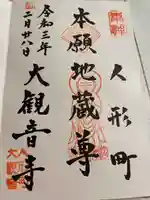 人形町
本願地蔵尊
大観音寺
令和三年
二月廿八日